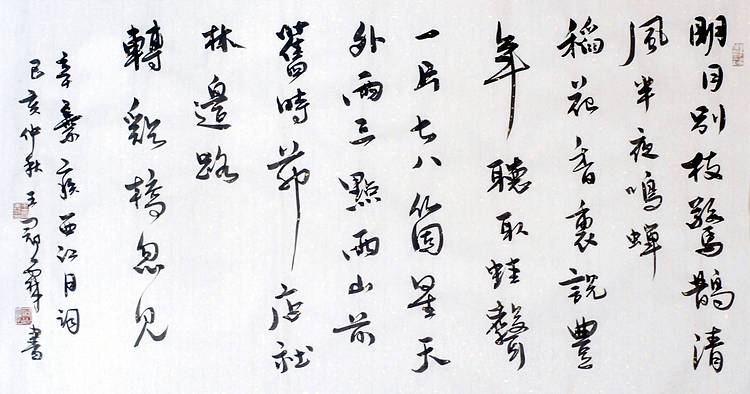 明月别枝驚鵲清
風半夜鳴蟬
稻花香裏説豐
年聽取蛙聲
一片七八個星天
外兩三點雨山前
舊時茆店社
林邊路
轉谿橋忽見
辛棄疾西江月詞
己亥仲秋王霖書